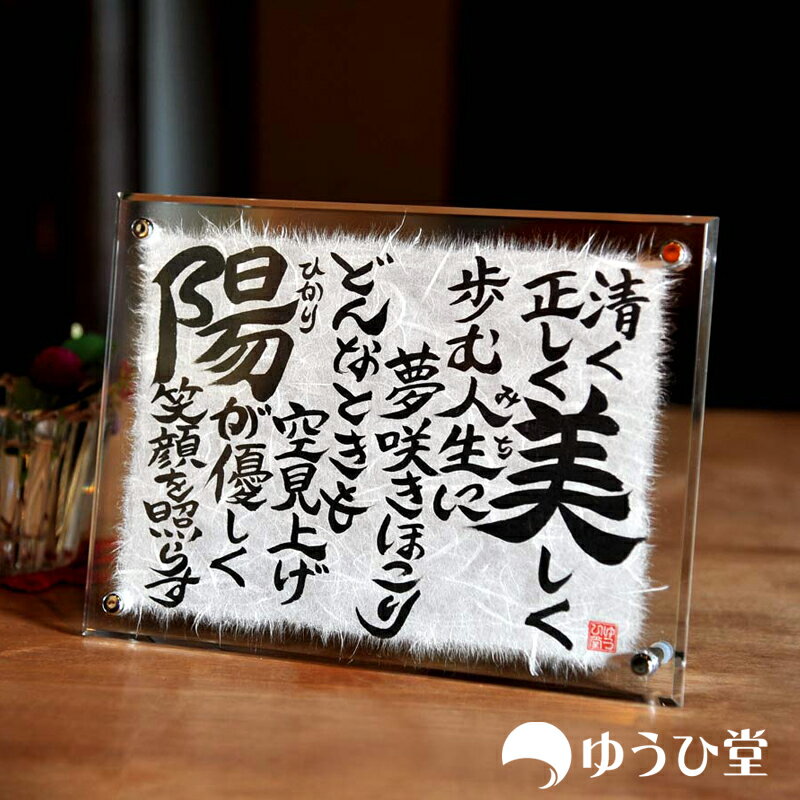 清く
正しく美しく
歩む人生に
みち
夢咲きほこり
どんなときも
空見上げ
ひかり
陽が優しく
笑顔を照らす
ゆうひ堂
ゆうひ堂